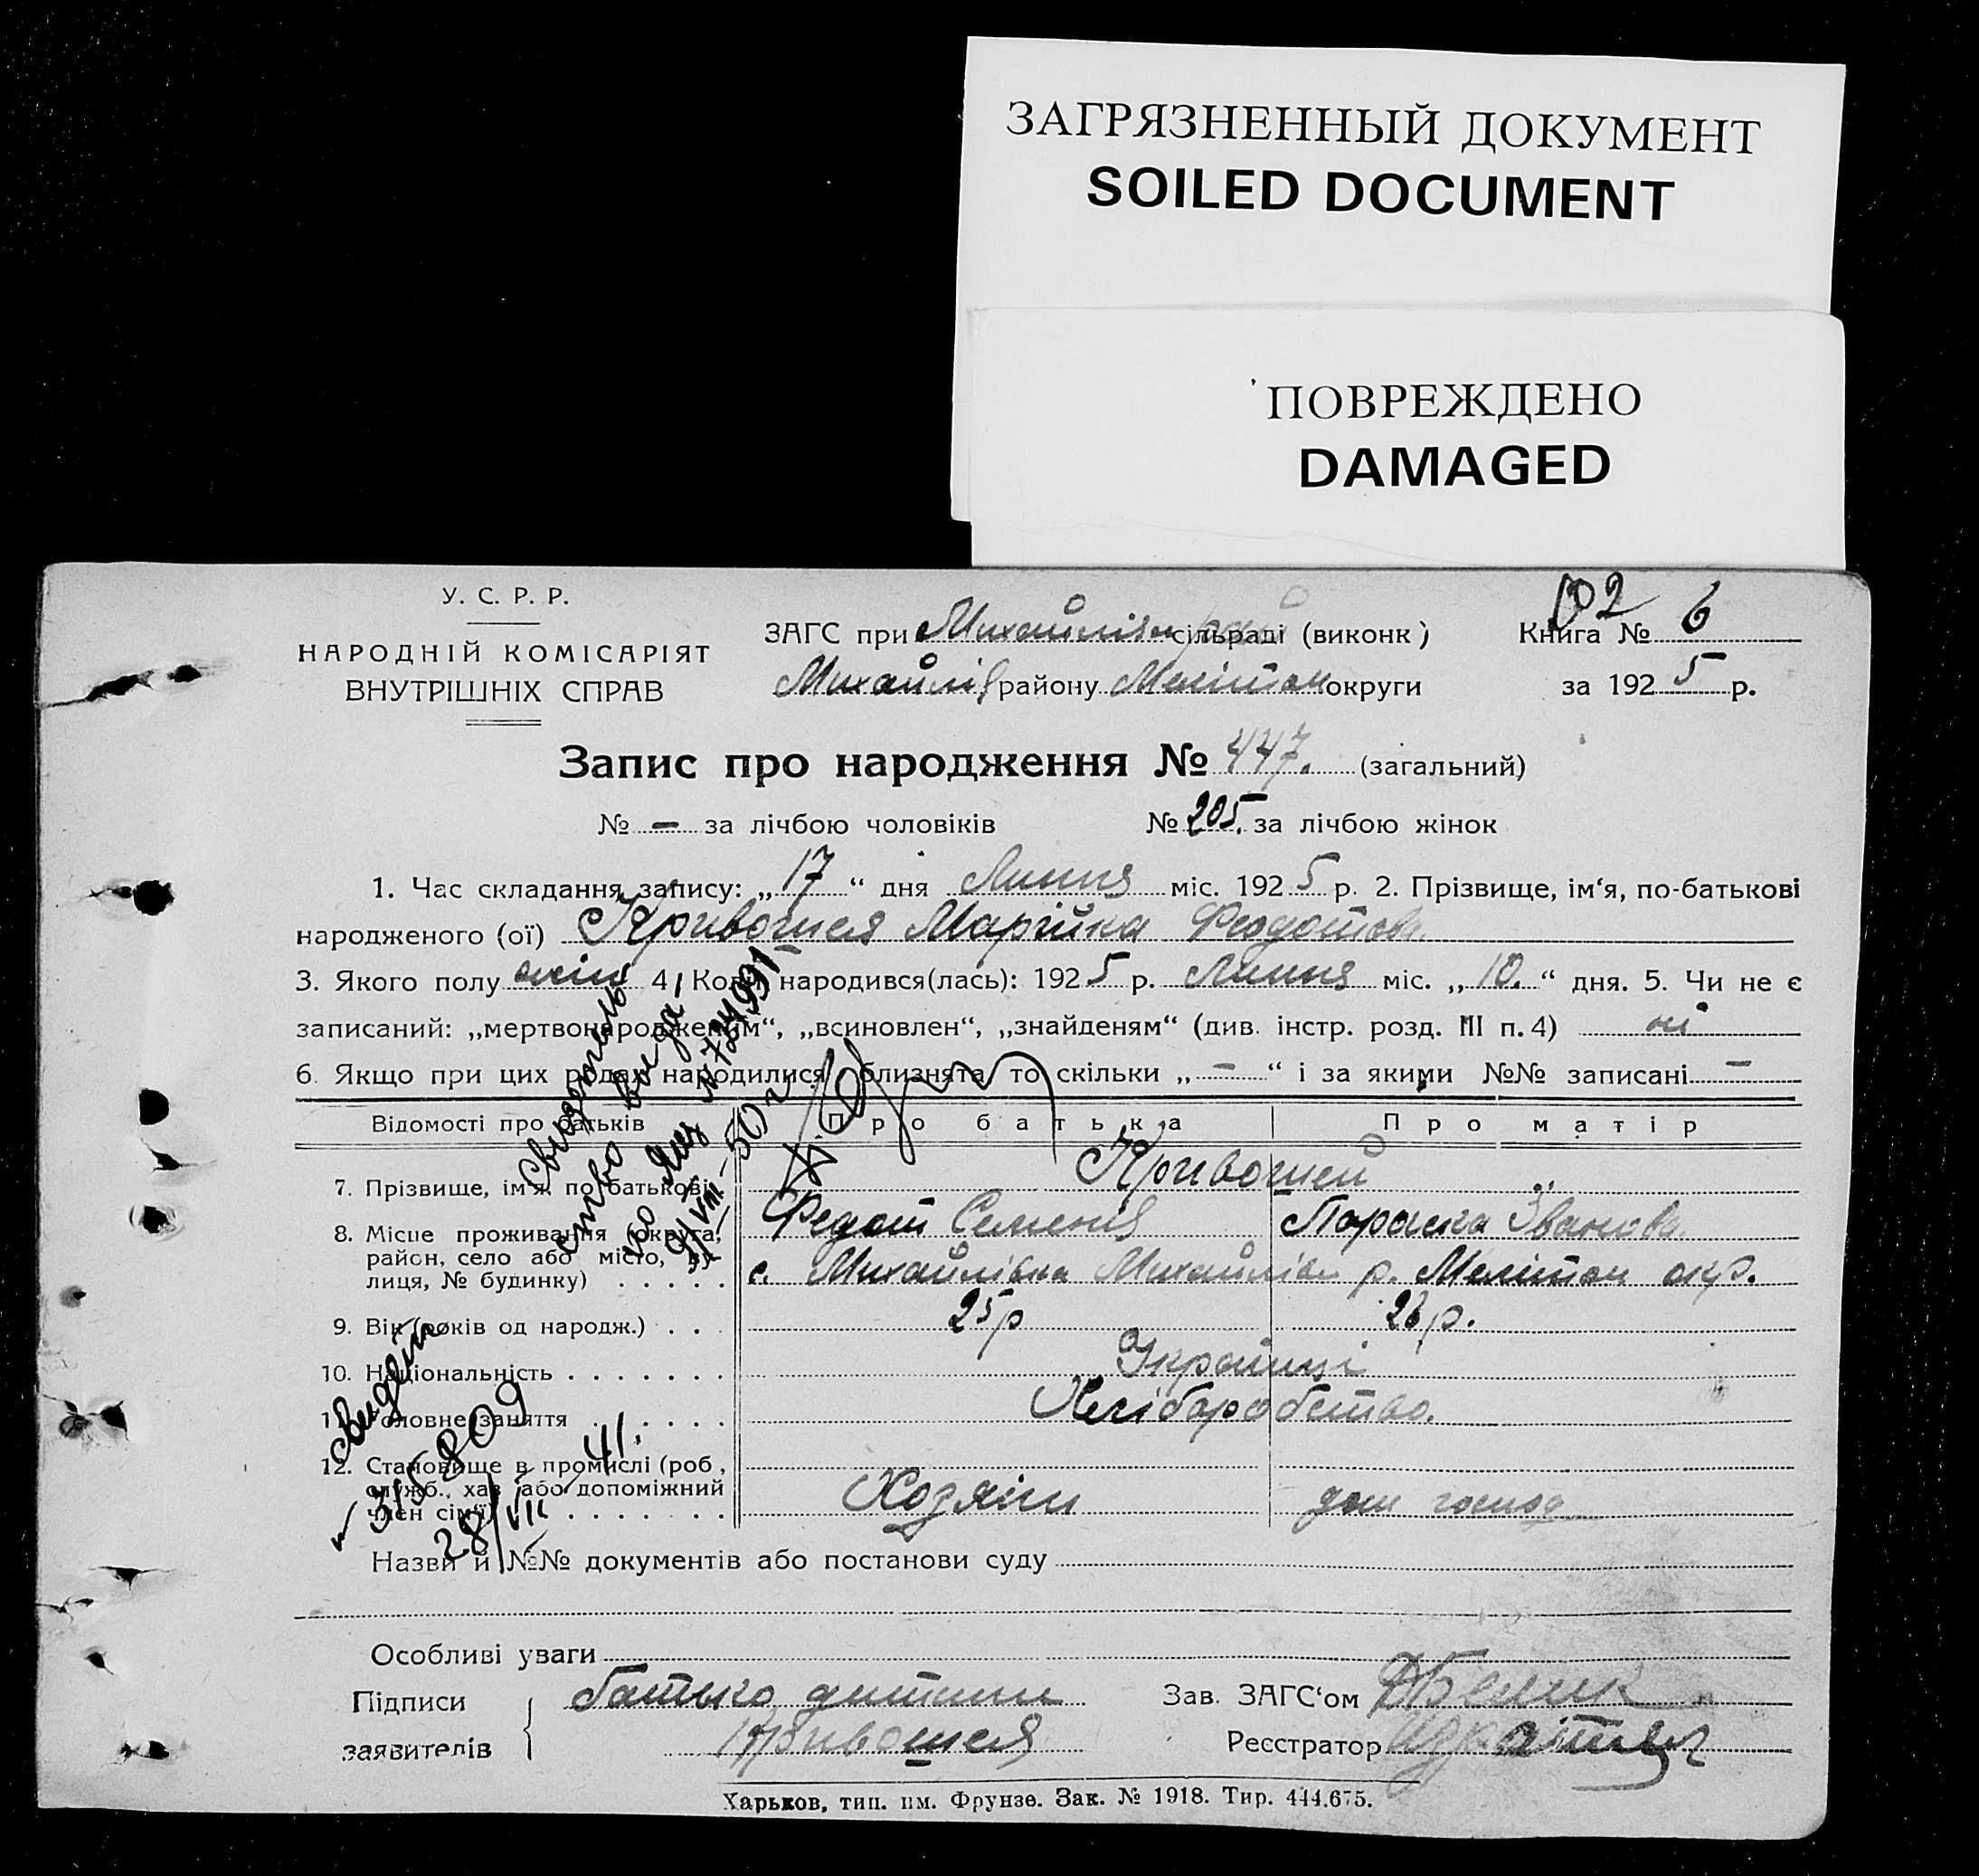 ЗАГРЯЗНЕННЫЙ ДОКУМЕНТ
SOILED DOCUMENT
ПОВРЕЖДЕНО
DAMAGED
У. С. Р. Р.
НАРОДНІЙ КОМІСАРІЯТ
ВНУТРІШНІХ СПРАВ
ЗАГС при Михайлівн сільраді (виконк)
Михайлів району Мелітоп округи
102
Книга № 6
за 1925 р.
Запис про народження № 447. (загальний)
№ – за лічбою чоловіків № 205. за лічбою жінок
1. Час складання запису: „17“ дня Липня міс. 1925 р. 2. Прізвище, ім‘я, по-батькові
народженого (ої) Кривошея Марійка Феодотова
3. Якого полу жін 4. Коли народився(лась): 1925 р. Липня міс. „10.“ дня. 5. Чи не є
записаний: „мертвонародженим“, „всиновлен“, „знайденям“ (див. інстр. розд. III п. 4) ні
6. Якщо при цих родах народилися близнята то скільки „–“ і за якими №№ записані –
Відомості про батьків Про батька Про матір
7. Прізвище, ім‘я по батькові Кривошей
Федот Семенів Параска Іванова
8. Місце проживання (округа, район, село або місто, вулиця, № будинку) с. Михайлівка Михайлів р. Мелітоп окр.
9. Вік (років од народж.) 25 р 26 р.
10. Національність Українці
11. Головне заняття Хліборобство.
12. Становище в промислі (роб., служб., хаз або допоміжний член сім‘ї) Хозяїн дом господ
Назви й №№ документів або постанови суду
Особливі уваги
Підписи заявителів батько дитини
Кривошея
Зав. ЗАГС‘ом
Реєстратор
Харьков, тип. им. Фрунзе. Зак. № 1918. Тир. 444.675.
Свидетель
ство выда-
но
9/VIII–50 г
Свидет
315809
28/VII 41.